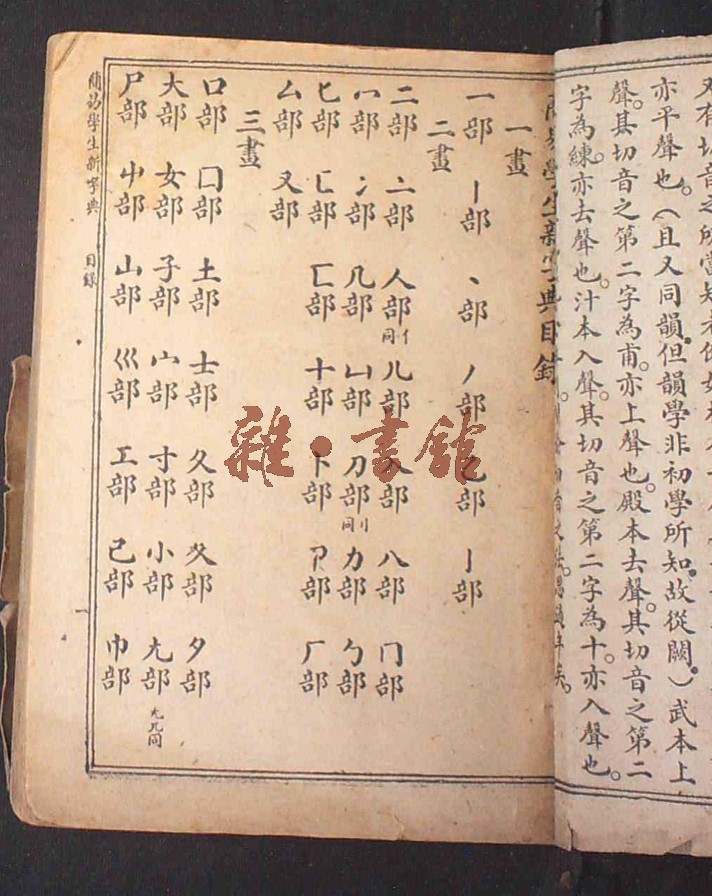 又有切音之所當知者
亦平聲也。（且又同韻。但韻學非初學所知。故從闕。）武本上
聲。其切音之第二字為甫。亦上聲也。殿本去聲。其切音之第二
字為練。亦去聲也。汁本入聲。其切音之第二字為十。亦入聲也。
簡易學生新字典目錄
一畫
一部 丨部 丶部 丿部 乙部 亅部
二畫
二部 亠部 人部 同亻 儿部 入部 八部 冂部
冖部 冫部 几部 凵部 刀部 同刂 力部 勹部
匕部 匚部 匸部 十部 卜部 卩部 厂部
厶部 又部
三畫
口部 囗部 土部 士部 夂部 夊部 夕部
大部 女部 子部 宀部 寸部 小部 尢部
尸部 屮部 山部 巛部 工部 己部 巾部
簡易學生新字典 目錄 一
雜·書館